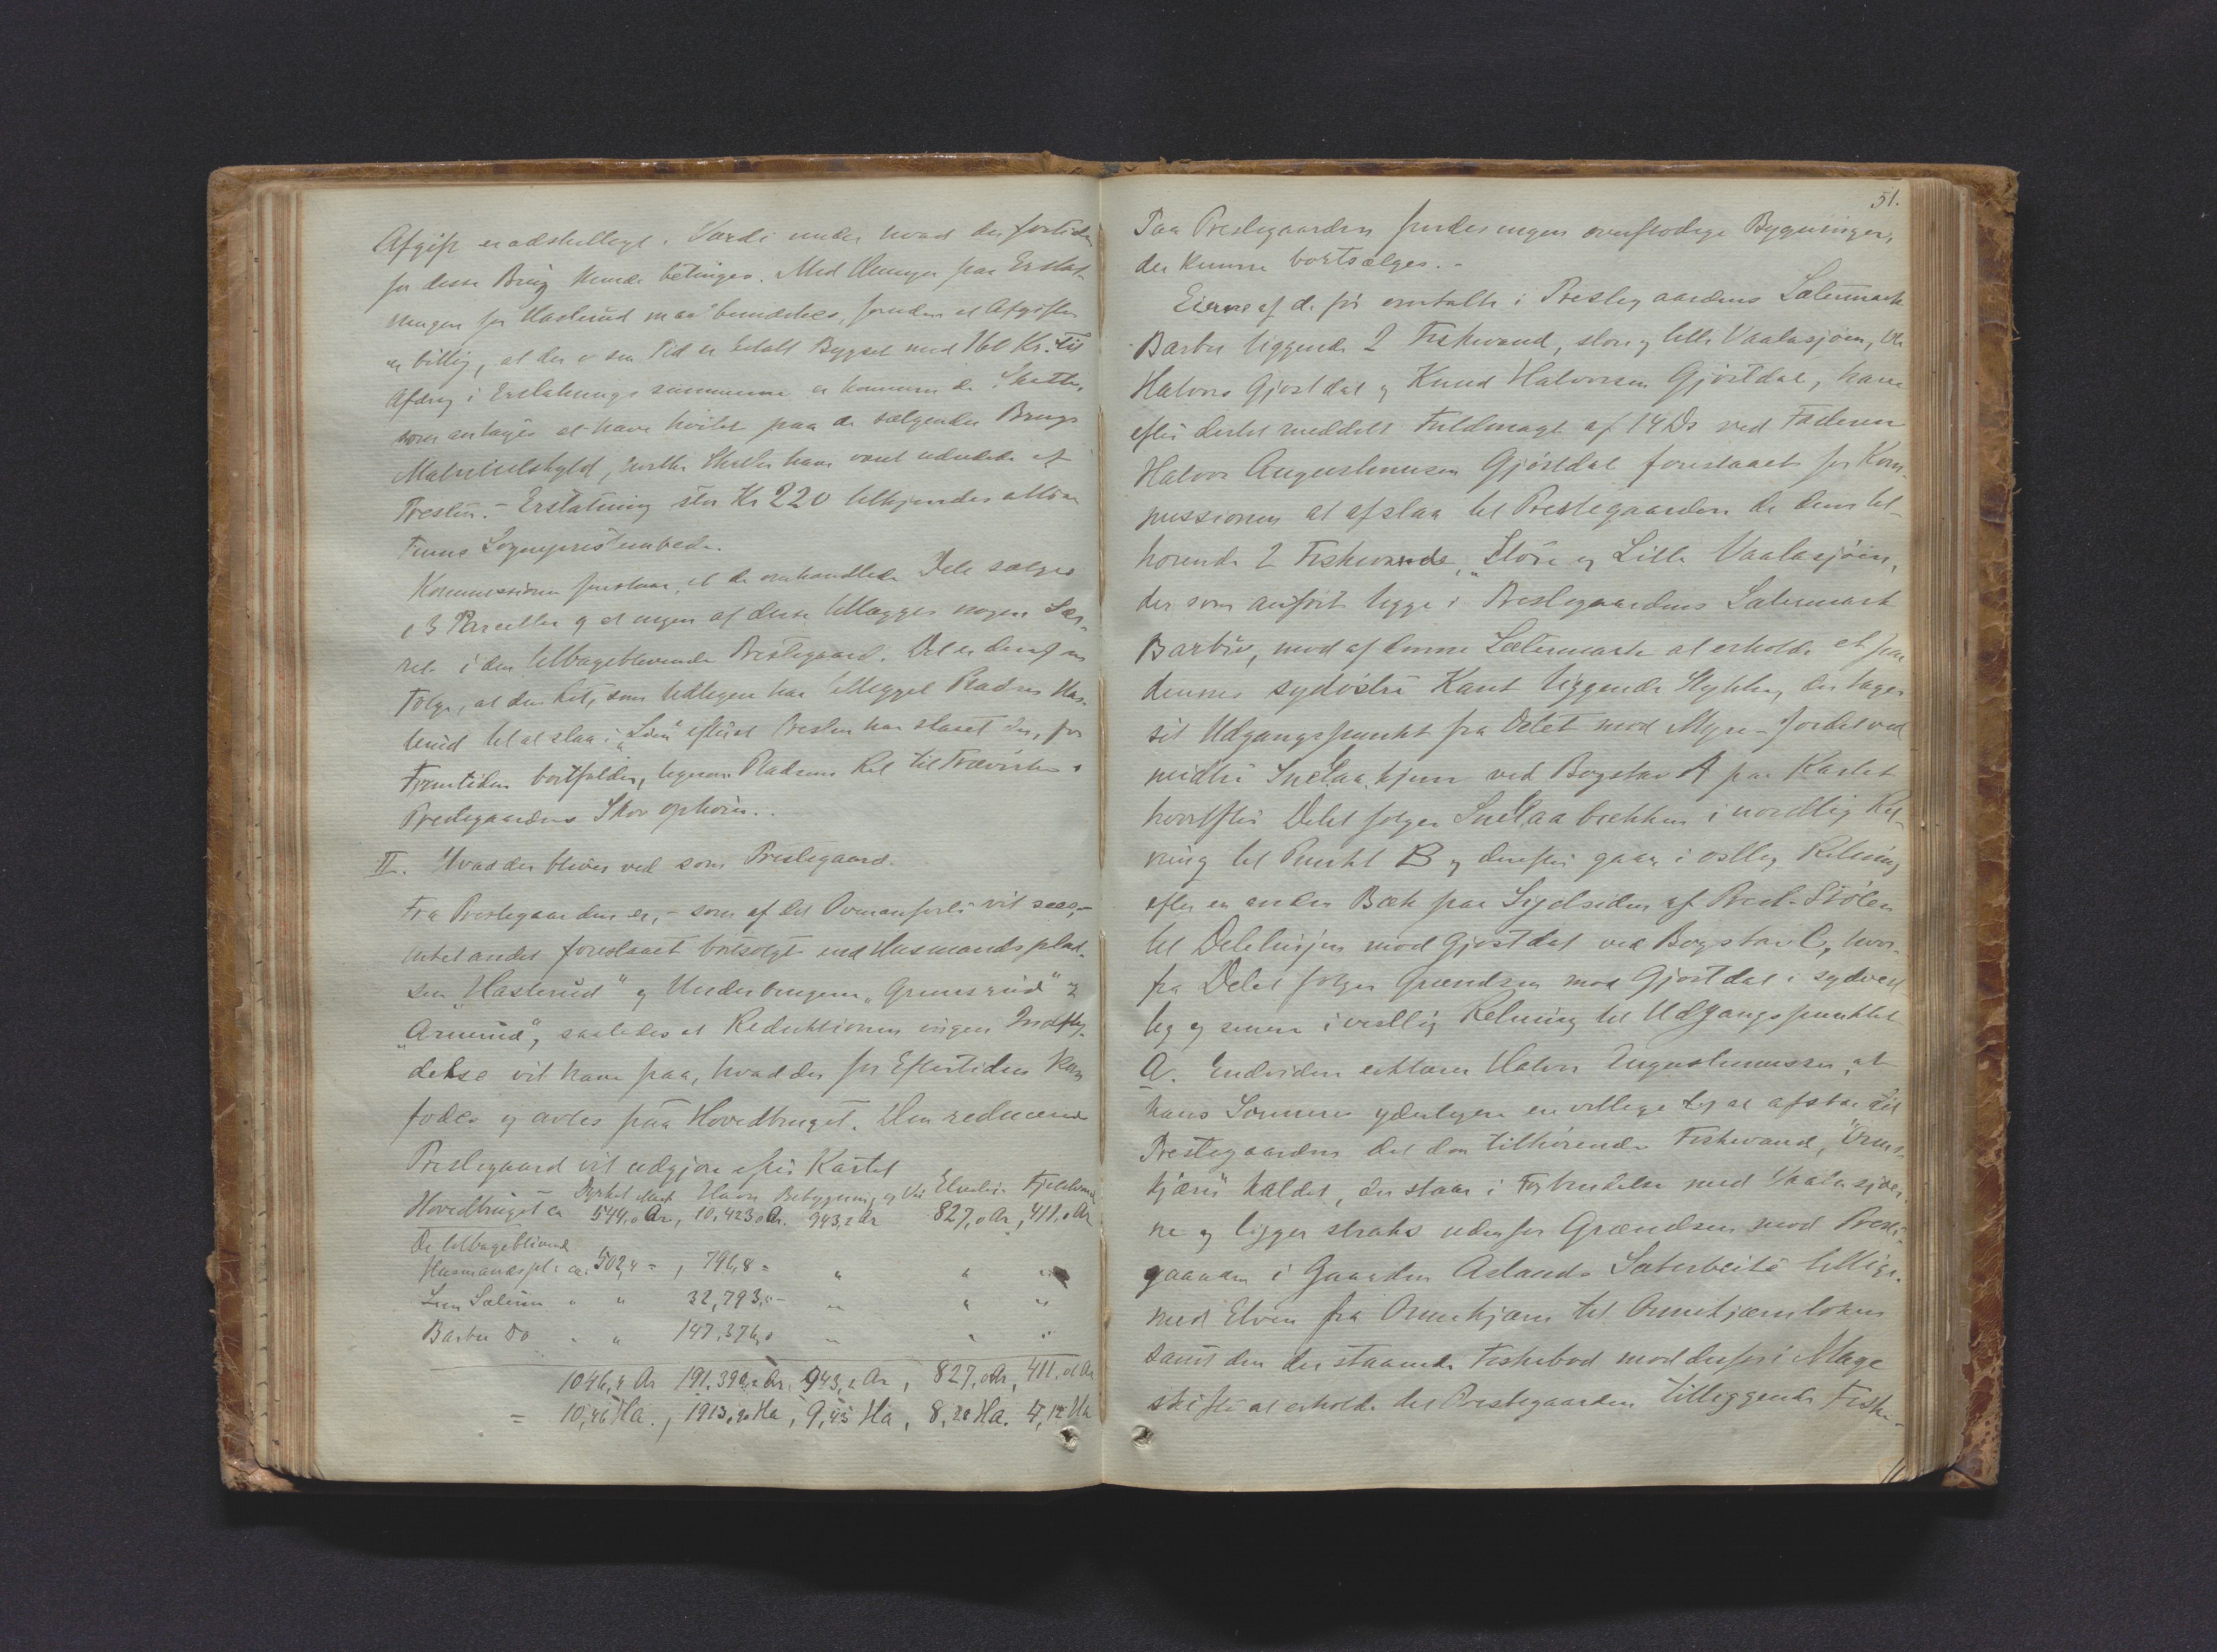 Afgift er adskilligt i Værdi under hvad der fortiden
for disse Brug kunde betinges. Med Hensyn paa Erstat-
ningen for Haslerud maa bemærkes, foruden at Afgiften
er billig, at der i sin Tid er betalt Bygsel med 160 Kr. Til
Afdrag i Erstatnings summerne er kommen de Skatter,
som antages at have hvilet paa de sælgendes Brugs
Matrikulskyld, hvilke Skatter have været udredede af
Presten. - Erstatning stor Kr 220 tilkjendes altsaa
Sognepresteembede.
Kommissionen foreslaar, at de omhandlede Dele sælges
i 3 Parceller og at ingen af disse tillægges nogen Sær-
ret i den tilbageblevende Prestegaard. Det er deraf en
Følge, at den Ret, som tidligere har tilligget Pladsen Has-
lerud til at slaa i "Lien" efterat Presten har slaaet der, for
Fremtiden bortfalder, ligesom Pladsens Ret til Trævirke i
Prestegaardens Skov ophører.
II. Hvad der bliver ved som Prestegaard.
Fra Prestegaarden er, - som af det Ovenanførte vil sees, -
intet andet foreslaaet bortsolgt end Husmandsplad-
sen "Haslerud" og Underbrugene "Grimsrud" og
"Arnerud", saaledes at Reduktionen ingen Indfly-
delse vil have paa, hvad der for Eftertiden kan
fødes og avles paa Hovedbruget. Den reducerede
Prestegaard vil udgjøre efter Kartet
Dyrket Mark Havn Bebygning og Vei Elveleie Fjeldvand
Hovedbruget ca 544,0 Ar, 10,423,0 Ar. 943,2 Ar 827,0 Ar, 411,0 Ar
De tilbageblivende
Husmandspl: ca. 502,4 = , 796,8 = " " "
Lien Sæteren " " 32,793,0 - " " "
Barbu Do " " 147,376,0 " " "
1046,4 Ar 191.390,2 Ar. 943,2 Ar, 827,0 Ar, 411,0 Ar
= 10,46 Ha., 1913,90 Ha, 9,43 Ha, 8,28 Ha. 4,12 Ha
51.
Paa Prestegaarden findes ingen overflødige Bygninger,
der kunne bortsælges. -
Eierne af de før omtalte i Prestegaardens Sætermark
Barbu liggende 2 Fiskevand, store og lille Vaalasjøen, Ole
Halvors Gjøstdal og Knud Halvorsen Gjøstdal, have
efter dertil meddelt Fuldmagt af 14 Ds ved Faderen
Halvor Augustinusen Gjøstdal foreslaaet for Kom-
missionen at afslaa til Prestegaarden de dem til-
hørende 2 Fiskevande, "Store og Lille Vaalasjøen,
der som anført ligge i Prestegaardens Sætermark
Barbu, mod af denne Sætermark at erholde et paa
dennes sydøstre Kant liggende Stykke, der tager
sit Udgangspunkt fra Delet mod Myre-Jordet ved
nedre Sneltaakjern ved Bogstav A paa Kartet
hvorefter Delet følger Sneltaa bækken i nordlig Ret-
ning til Punkt B og derefter gaar i østlig Retning
efter en anden Bæk paa Sydsiden af Prest-Stølen
til Delelinjen mod Gjøstdal ved Bogstav C, hvor-
fra Delet følger Grændsen mod Gjøstdal i sydvest-
lig og senere i vestlig Retning til Udgangspunktet
A. Endvidere erklærer Halvor Augustinussen, at
hans Sønner yderligere er villige til at afstaa til
Prestegaarden det dem tilhørende Fiskevand, "Orme-
kjern" kaldet, der staar i Forbindelse med Vaalasjøer-
ne og ligger straks udenfor Grændsen mod Preste-
gaarden i Gaarden Aslands Sæterbeite tillige-
med Elven fra Ormekjern til Ormekjernloken
samt den der staaende Fiskebod mod derfor i Mage
skifte at erholde det Prestegaarden tilliggende Fiske-